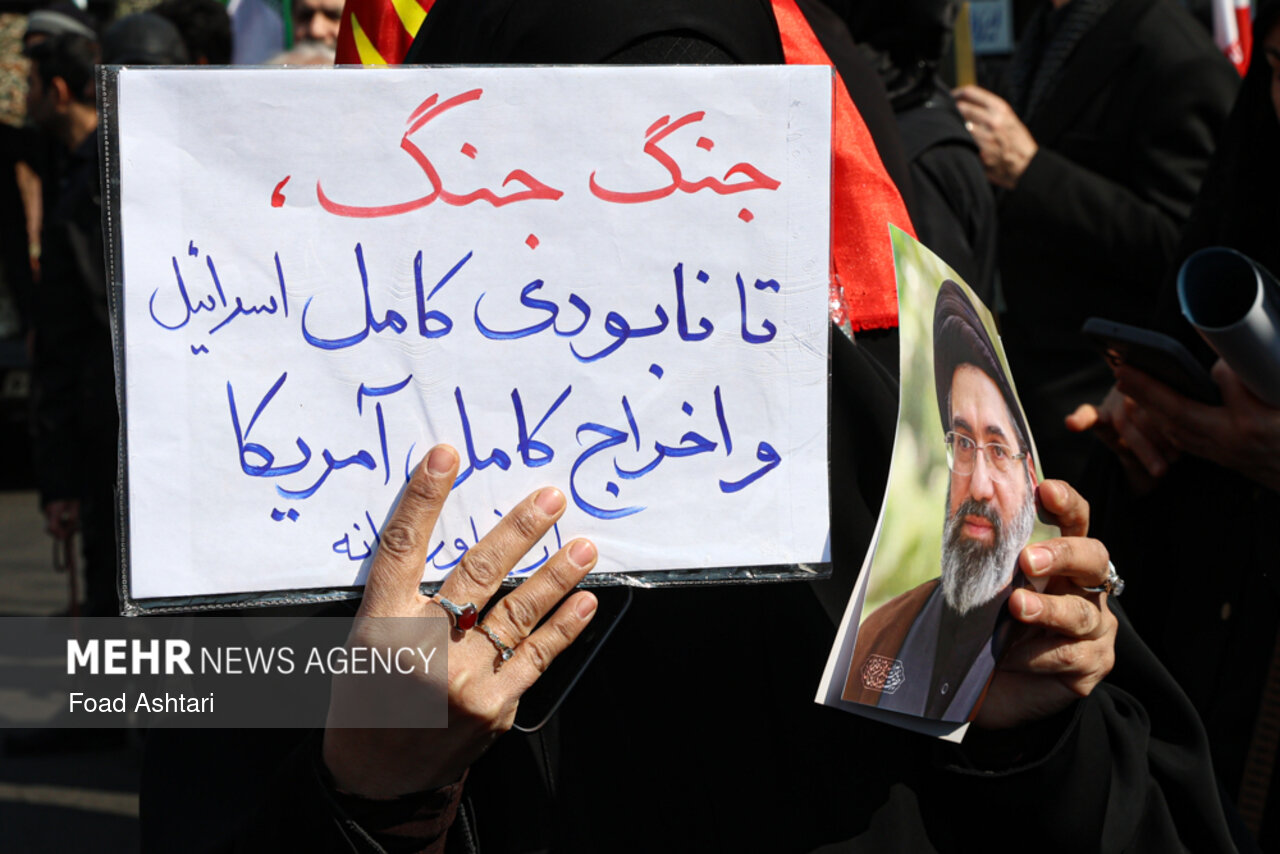 جنگ جنگ،
تا نابودی کامل اسرائیل
و اخراج کامل آمریکا
از خاورمیانه
MEHR NEWS AGENCY
Foad Ashtari